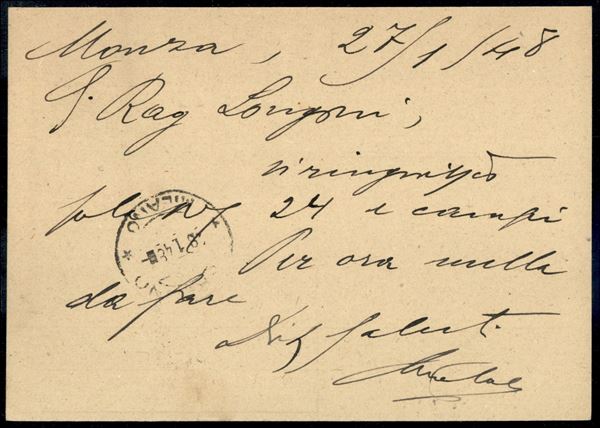 Monza, 27/1/48
S. Rag Longoni,
vi ringrazio
24 e campi
Per ora nulla
da fare
Dis. saluti
MILANO